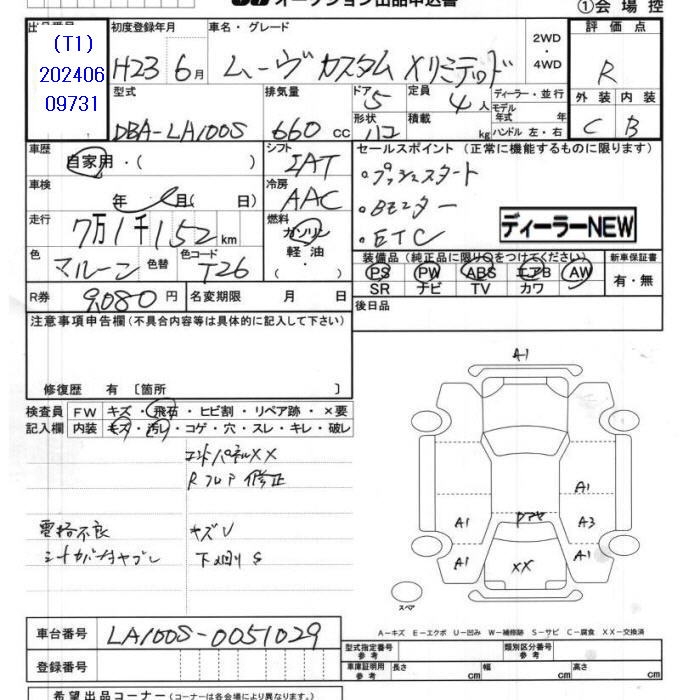 オークション出品申込書
①会場控
出品番号
(T1)
202406
09731
初度登録年月
H23 6月
車名・グレード
ムーヴカスタム Xリミテッド
2WD
・
4WD
評価点
R
外装 内装
C B
型式
DBA-LA100S
排気量
660 cc
ドア 5
形状
ハコ
定員 4人
積載 kg
ディーラー・並行
モデル年式 年
ハンドル 左・右
車歴
自家用・( )
シフト
IAT
セールスポイント(正常に機能するものに限ります)
。プッシュスタート
。Bモニター
。ETC
ディーラーNEW
車検
年 月( 日)
冷房
AAC
走行
7万1千152km
燃料
ガソリン
軽油・
( ・ )
色
マルーン
色替
色コード
T26
装備品(純正品に限り○をつけてください)
PS PW ABS エアB AW
SR ナビ TV カワ
新車保証書
有・無
R券
9,080円
名変期限 月 日
後日品
注意事項申告欄(不具合内容等は具体的に記入して下さい)
修復歴 有〔箇所 〕
検査員 FW キズ・飛石・ヒビ割・リペア跡・×要
記入欄 内装 キズ・汚レ・コゲ・穴・スレ・キレ・破レ
エンドパネルXX
Rフロア修正
電格不良 キズU
シートカバー付ヤブレ 下廻りS
A1
A1
A1
A3
A1
A1
XX
スペア
A-キズ E-エクボ U-凹み W-補修跡 S-サビ C-腐食 XX-交換済
車台番号
LA100S-0051029
登録番号
型式指定番号
参考
類別区分番号
参考
車庫証明用
参考
長さ cm 幅 cm 高さ cm
希望出品コーナー(コーナーは各会場により異なります。)